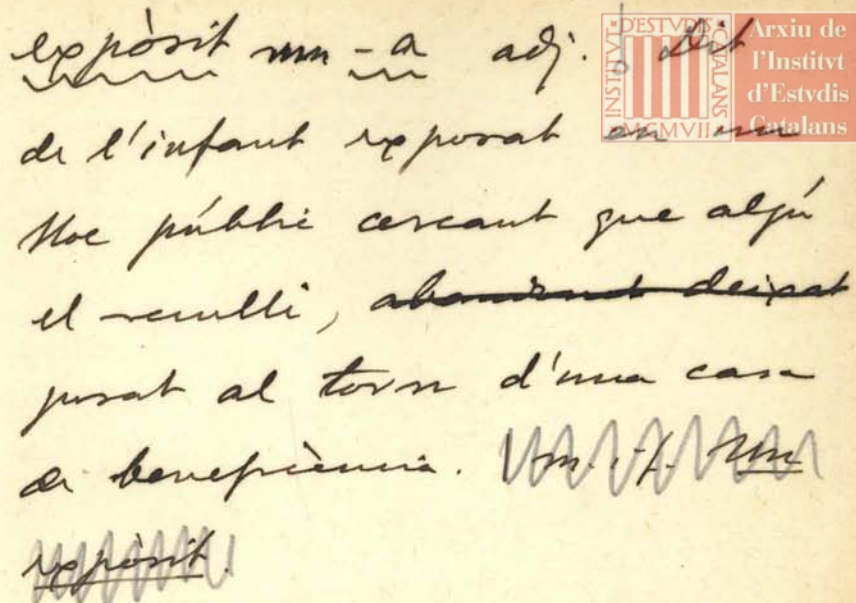 expòsit -a adj. Dit
de l'infant exposat en un
lloc públic cercant que algú
el reculli, abandonat deixat
posat al torn d'una casa
de beneficència. m. i f. Un
expòsit.
INSTITVT D'ESTVDIS CATALANS
MCMVII
Arxiu de
l'Institvt
d'Estvdis
Catalans